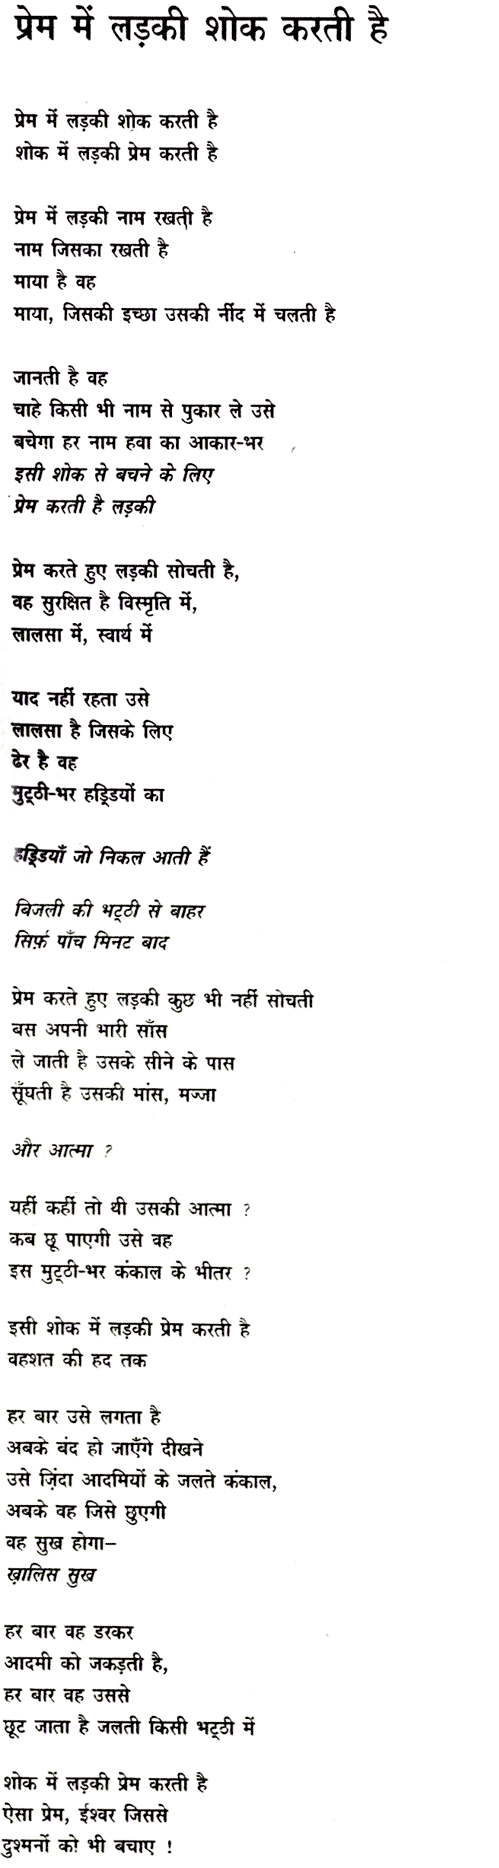 प्रेम में लड़की शोक करती है
प्रेम में लड़की शोक करती है
शोक में लड़की प्रेम करती है
प्रेम में लड़की नाम रखती है
नाम जिसका रखती है
माया है वह
माया, जिसकी इच्छा उसकी नींद में चलती है
जानती है वह
चाहे किसी भी नाम से पुकार ले उसे
बचेगा हर नाम हवा का आकार-भर
इसी शोक से बचने के लिए
प्रेम करती है लड़की
प्रेम करते हुए लड़की सोचती है,
वह सुरक्षित है विस्मृति में,
लालसा में, स्वार्थ में
याद नहीं रहता उसे
लालसा है जिसके लिए
ढेर है वह
मुट्ठी-भर हड्डियों का
हड्डियाँ जो निकल आती हैं
बिजली की भट्ठी से बाहर
सिर्फ़ पाँच मिनट बाद
प्रेम करते हुए लड़की कुछ भी नहीं सोचती
बस अपनी भारी साँस
ले जाती है उसके सीने के पास
सूँघती है उसकी मांस, मज्जा
और आत्मा ?
यहीं कहीं तो थी उसकी आत्मा ?
कब छू पाएगी उसे वह
इस मुट्ठी-भर कंकाल के भीतर ?
इसी शोक में लड़की प्रेम करती है
वहशत की हद तक
हर बार उसे लगता है
अबके बंद हो जाएँगे दीखने
उसे ज़िंदा आदमियों के जलते कंकाल,
अबके वह जिसे छुएगी
वह सुख होगा–
ख़ालिस सुख
हर बार वह डरकर
आदमी को जकड़ती है,
हर बार वह उससे
छूट जाता है जलती किसी भट्ठी में
शोक में लड़की प्रेम करती है
ऐसा प्रेम, ईश्वर जिससे
दुश्मनों को भी बचाए !